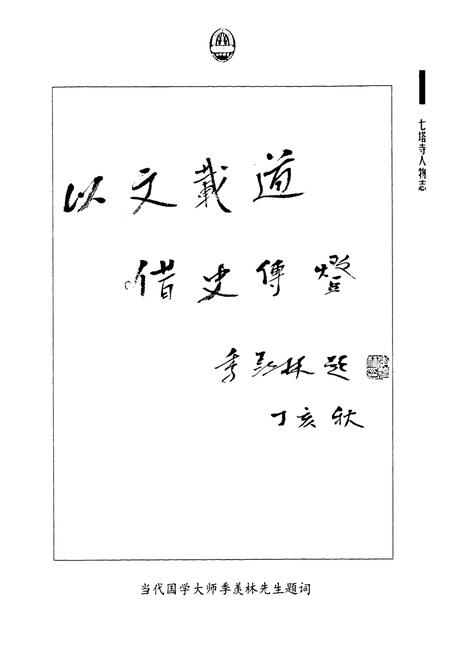 七塔寺人物志
以文載道
借史傳燈
季羡林题
丁亥秋
当代国学大师季羡林先生题词